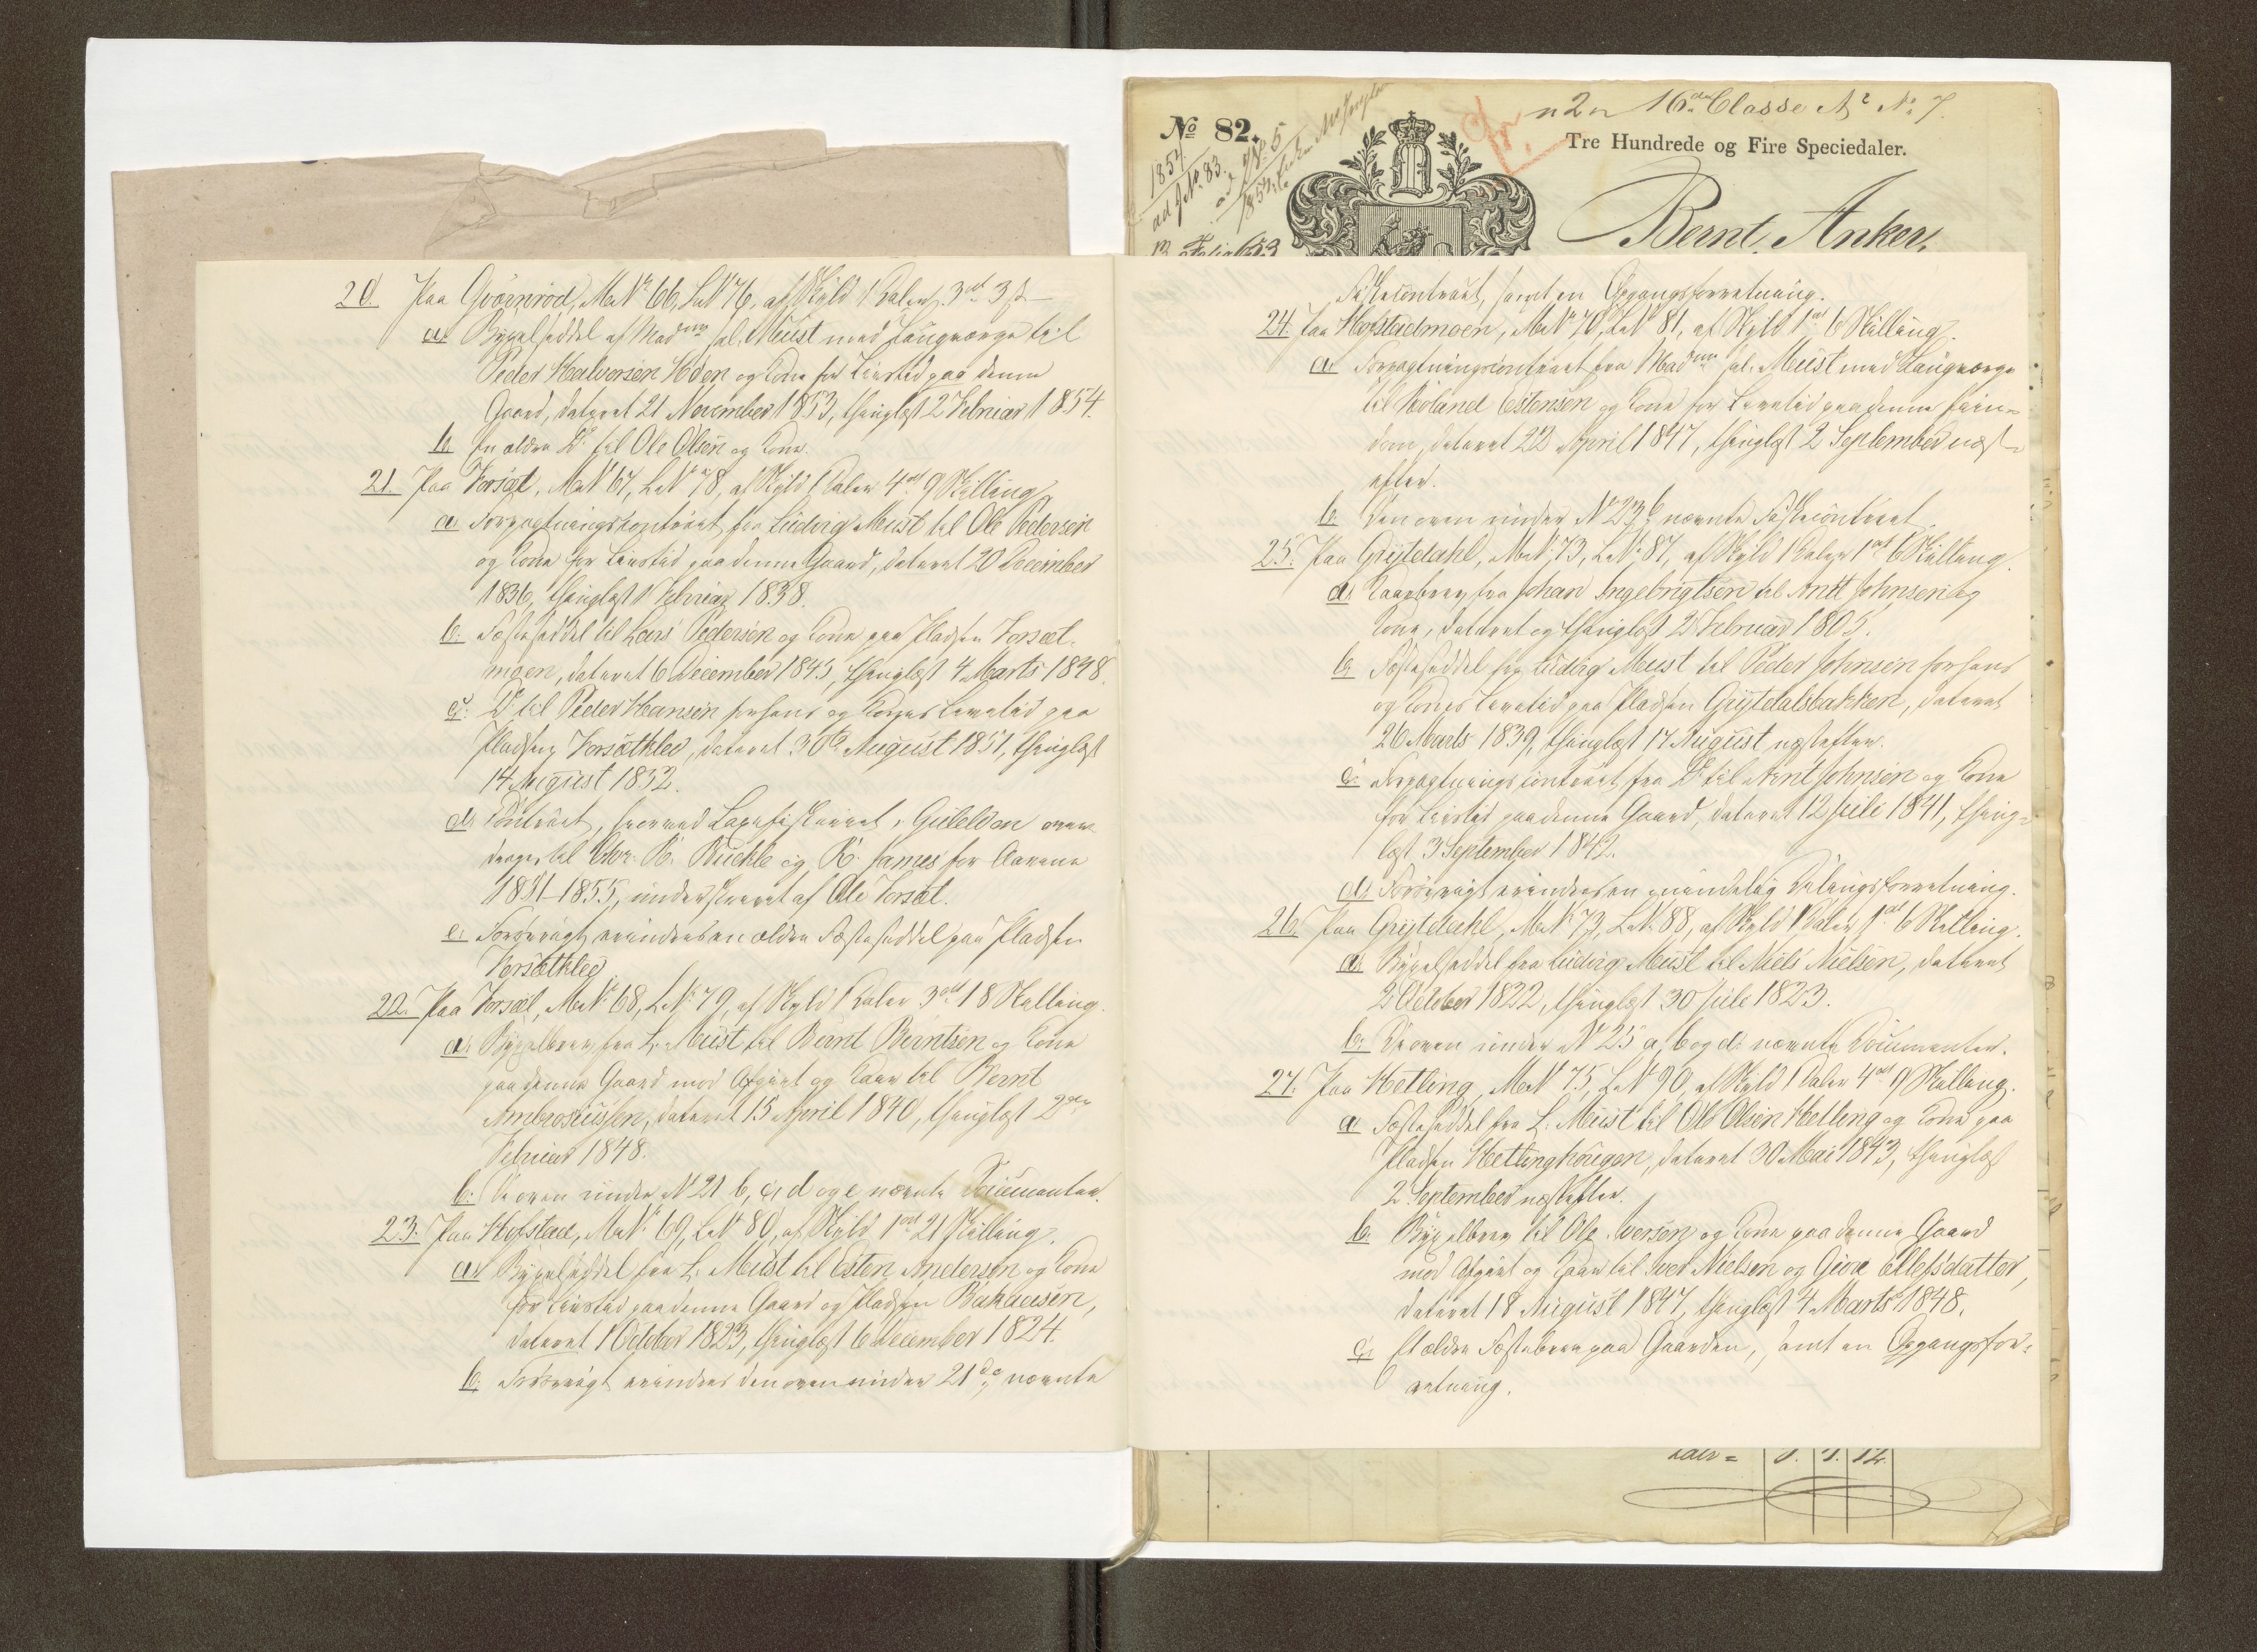 20. Paa Qvainrød, M. № 66, L. № 76, af Skyld 1 Daler 3 ort 3 ß
a. Bygselseddel af Madme sal. Must med Laugværge til
Peder Halvorsen Hden og Kone for Livstid paa denne
Gaard, dateret 21 November 1853, thinglæst 2 Februar 1854.
b. En ældre Do til Ole Olsen og Kone.
21. Paa Forsæt, M. № 67, L. № 78, af Skyld 1 Daler 4 ort 9 Skilling
a. Forpagtningskontract fra Ludvig Must til Ole Pedersen
og Kone for Livstid paa denne Gaard, dateret 20 December
1836, thinglæst 1 Februar 1838.
b. Fæsteseddel til Lars Pedersen og Kone paa Pladsen Forsæt-
moen, dateret 6 December 1845, thinglæst 4 Marts 1848.
c. Do til Peder Hansen for hans og Kones Levetid paa
Pladsen Forsætklev, dateret 30 August 1851, thinglæst
14 August 1852.
d. Contract, hvorved Laxefiskeriet i Guleldven over-
drages til Chr. R. Buckle og R. James for Aarene
1851–1855, underskrevet af Ole Forsæt.
e. Forøvrigt erindres en ældre Fæsteseddel paa Pladsen
Forsætklev.
22. Paa Forsæt, M. № 68, L. № 79, af Skyld 1 Daler 3 ort 18 Skilling.
a. Bygselbrev fra L. Must til Bernt Berntsen og Kone
paa denne Gaard mod Afgivt og Kaar til Bernt
Ambrosiussen, dateret 15 April 1840, thinglæst 2den
Februar 1848.
b. De oven under № 21 b, c, d og e nævnte Documenter.
23. Paa Hofstad, M. № 69, L. № 80, af Skyld 1 ort 21 Skilling.
a. Bygselseddel fra L. Must til Esten Andersen og Kone
for Livstid paa denne Gaard og Pladsen Bakausen,
dateret 1 October 1823, thinglæst 6 December 1824.
b. Forøvrigt erindres den oven under 21 d nævnte
№ 82.
n 2 n 16de Classe A2 № 7.
Tre Hundrede og Fire Speciedaler.
Bernt Anker,
Fiskecontract, samt en Opgangsforretning.
24. Paa Hofstadmoen, M. № 70, L. № 81, af Skyld 1 ort 6 Skilling.
a. Forpagtningscontract fra Madme sal. Must med Laugværge
til Roland Estensen og Kone for Levetid paa denne Eien-
dom, dateret 22 April 1847, thinglæst 2 September næst-
efter.
b. Den oven under № 23 b nævnte Fiskecontract.
25. Paa Grytdahl, M. № 73, L. № 87, af Skyld 1 Daler 1 ort 6 Skilling.
a. Kaarbrev fra Johan Ingebrigtsen til Arnt Johnsen og
Kone, dateret og thinglæst 2 Februar 1805.
b. Fæsteseddel fra Ludvig Must til Peder Johnsen for hans
og Kones Levetid paa Pladsen Grytdalsbakken, dateret
26 Marts 1839, thinglæst 17 August næstefter.
c. Forpagtningscontract fra Do til Arnt Johnsen og Kone
for Livstid paa denne Gaard, dateret 12 Juli 1841, thing-
læst 3 September 1842.
d. Forøvrigt erindres en mindelig Delingsforretning.
26. Paa Grytdahl, M. № 73, L. № 88, af Skyld 1 Daler 1 ort 6 Skilling.
a. Bygselseddel fra Ludvig Must til Niels Nielsen, dateret
2 October 1822, thinglæst 30 Juli 1823.
b. De oven under № 25 a, b og d nævnte Documenter.
27. Paa Hetling, M. № 75, L. № 90, af Skyld 1 Daler 4 ort 9 Skilling.
a. Fæsteseddel fra L. Must til Ole Olsen Hetling og Kone paa
Pladsen Hetlinghougen, dateret 30 Mai 1843, thinglæst
2 September næstefter.
b. Bygselbrev til Ole Iversen og Kone paa denne Gaard
mod Afgivt og Kaar til Iver Nielsen og Giøe Ellefsdatter,
dateret 18 August 1847, thinglæst 4 Marts 1848.
c. Et ældre Fæstebrev paa Gaarden, samt en Opgangsfor-
retning.